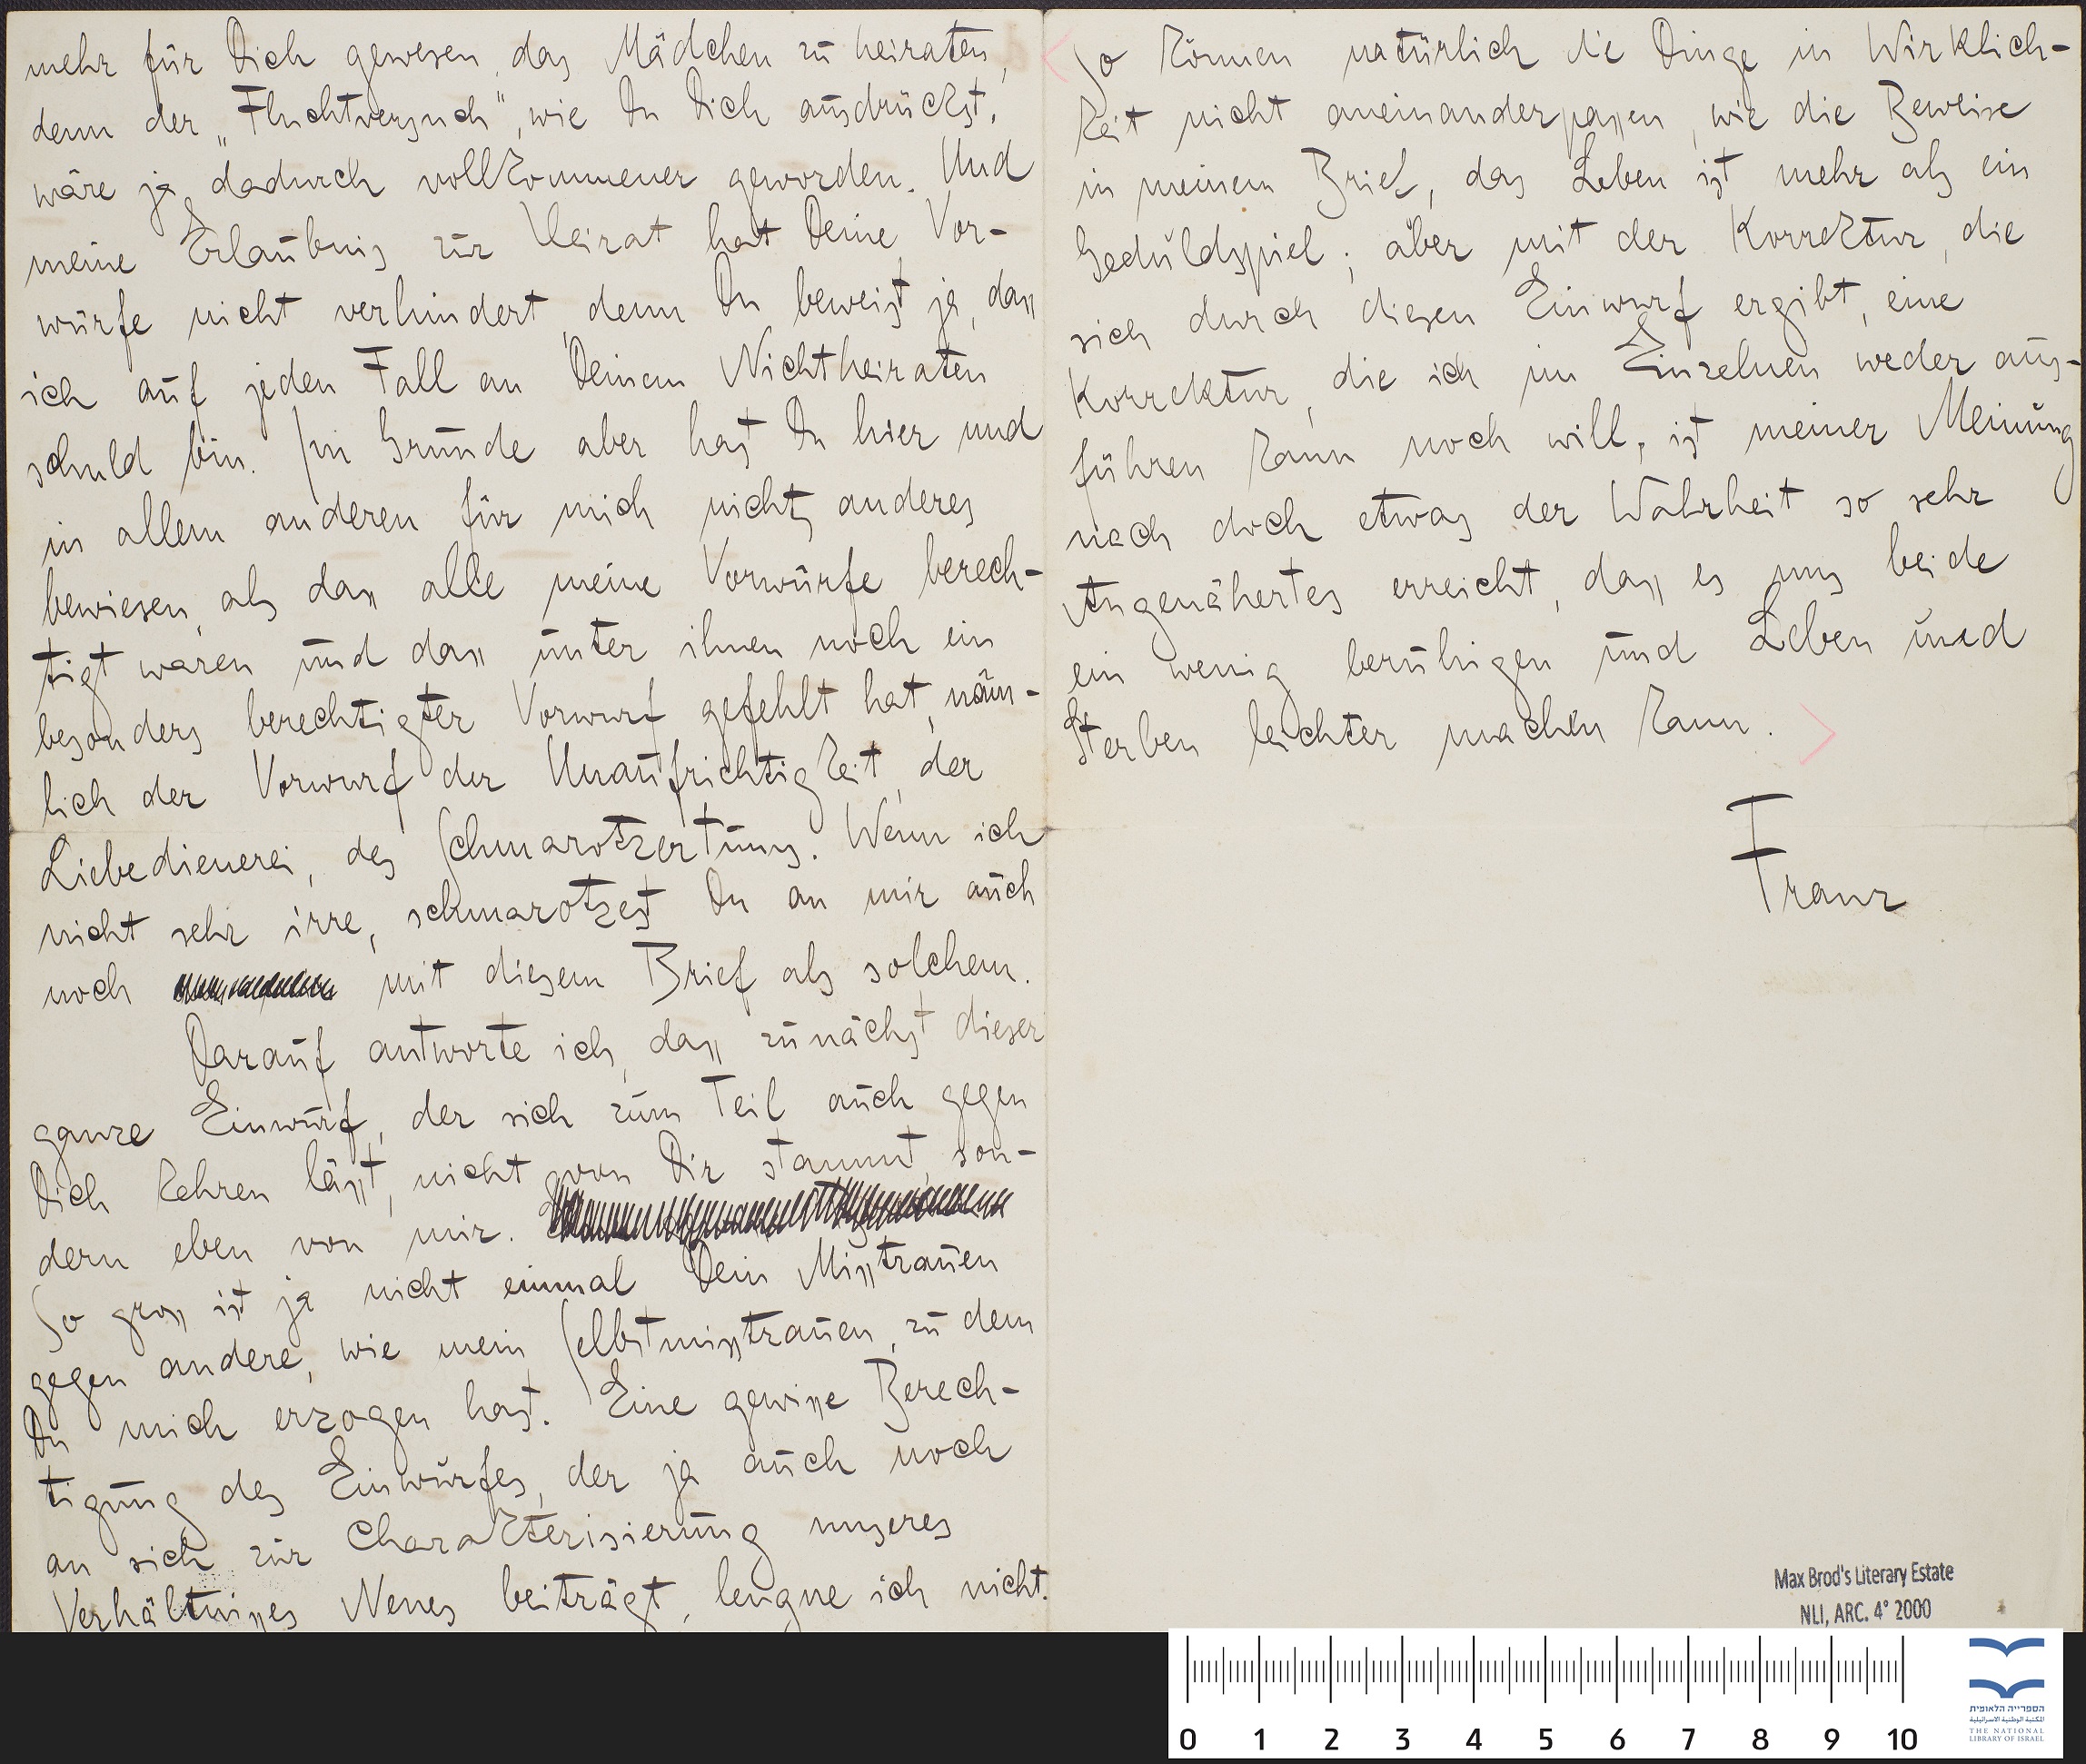 mehr für Dich gewesen, das Mädchen zu heiraten,
denn der „Fluchtversuch", wie Du Dich ausdrückst,
wäre ja dadurch vollkommener geworden. Und
meine Erlaubnis zur Heirat hat Deine Vor-
würfe nicht verhindert, denn Du beweist ja, dass
ich auf jeden Fall an Deinem Nichtheiraten
schuld bin. Im Grunde aber hast Du hier und
in allem anderen für mich nichts anderes
bewiesen, als dass alle meine Vorwürfe berech-
tigt waren und dass unter ihnen noch ein
besonders berechtigter Vorwurf gefehlt hat, näm-
lich der Vorwurf der Unaufrichtigkeit, der
Liebedienerei, des Schmarotzertums. Wenn ich
nicht sehr irre, schmarotzest Du an mir auch
noch mit diesem Brief als solchem.
Darauf antworte ich, dass zunächst dieser
ganze Einwurf, der sich zum Teil auch gegen
Dich kehren lässt, nicht von Dir stammt, son-
dern eben von mir.
So gross ist ja nicht einmal Dein Misstrauen
gegen andere, wie mein Selbstmisstrauen, zu dem
Du mich erzogen hast. Eine gewisse Berech-
tigung des Einwurfes, der ja auch noch
an sich zur Charakterisierung unseres
Verhältnisses Neues beiträgt, leugne ich nicht.
So können natürlich die Dinge in Wirklich-
keit nicht aneinanderpassen, wie die Beweise
in meinem Brief, das Leben ist mehr als ein
Geduldspiel; aber mit der Korrektur, die
sich durch diesen Einwurf ergibt, eine
Korrektur, die ich im Einzelnen weder aus-
führen kann noch will, ist meiner Meinung
nach doch etwas der Wahrheit so sehr
Angenähertes erreicht, dass es uns beide
ein wenig beruhigen und Leben und
Sterben leichter machen kann.
Franz
Max Brod's Literary Estate
NLI, ARC. 4° 2000
0 1 2 3 4 5 6 7 8 9 10
הספרייה הלאומית
المكتبة الوطنية الاسرائيلية
THE NATIONAL
LIBRARY OF ISRAEL